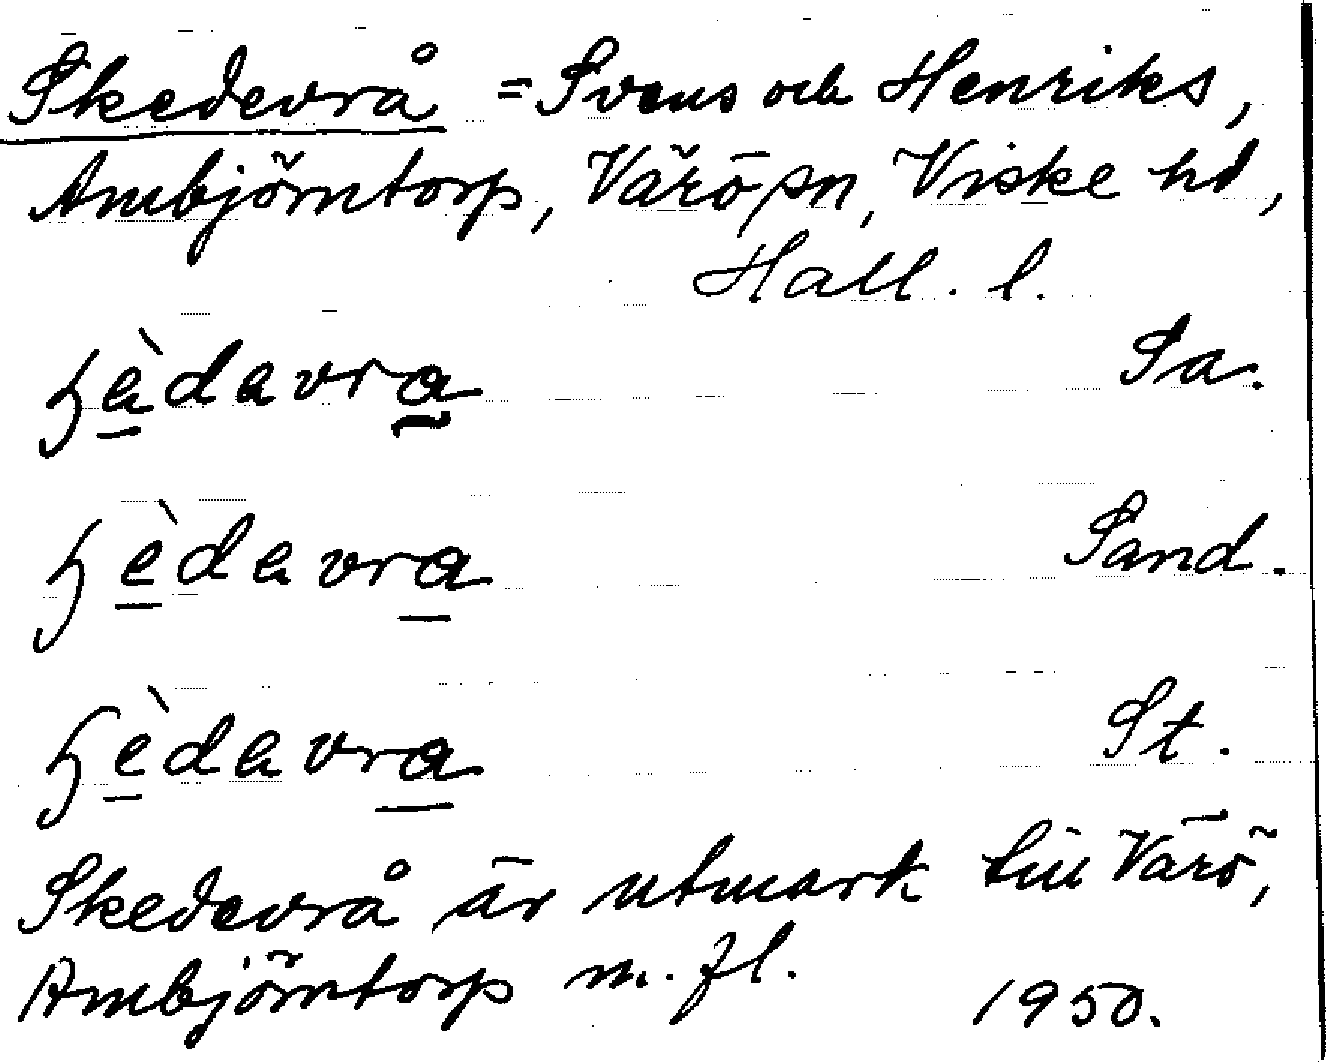 Skedevrå = Svens och Henriks,
Ambjörntorp, Värö sn, Viske hd,
Hall. l.
Sa.
Sand.
St.
Skedevrå är utmark till Värö,
Ambjörntorp m. fl.
1950.